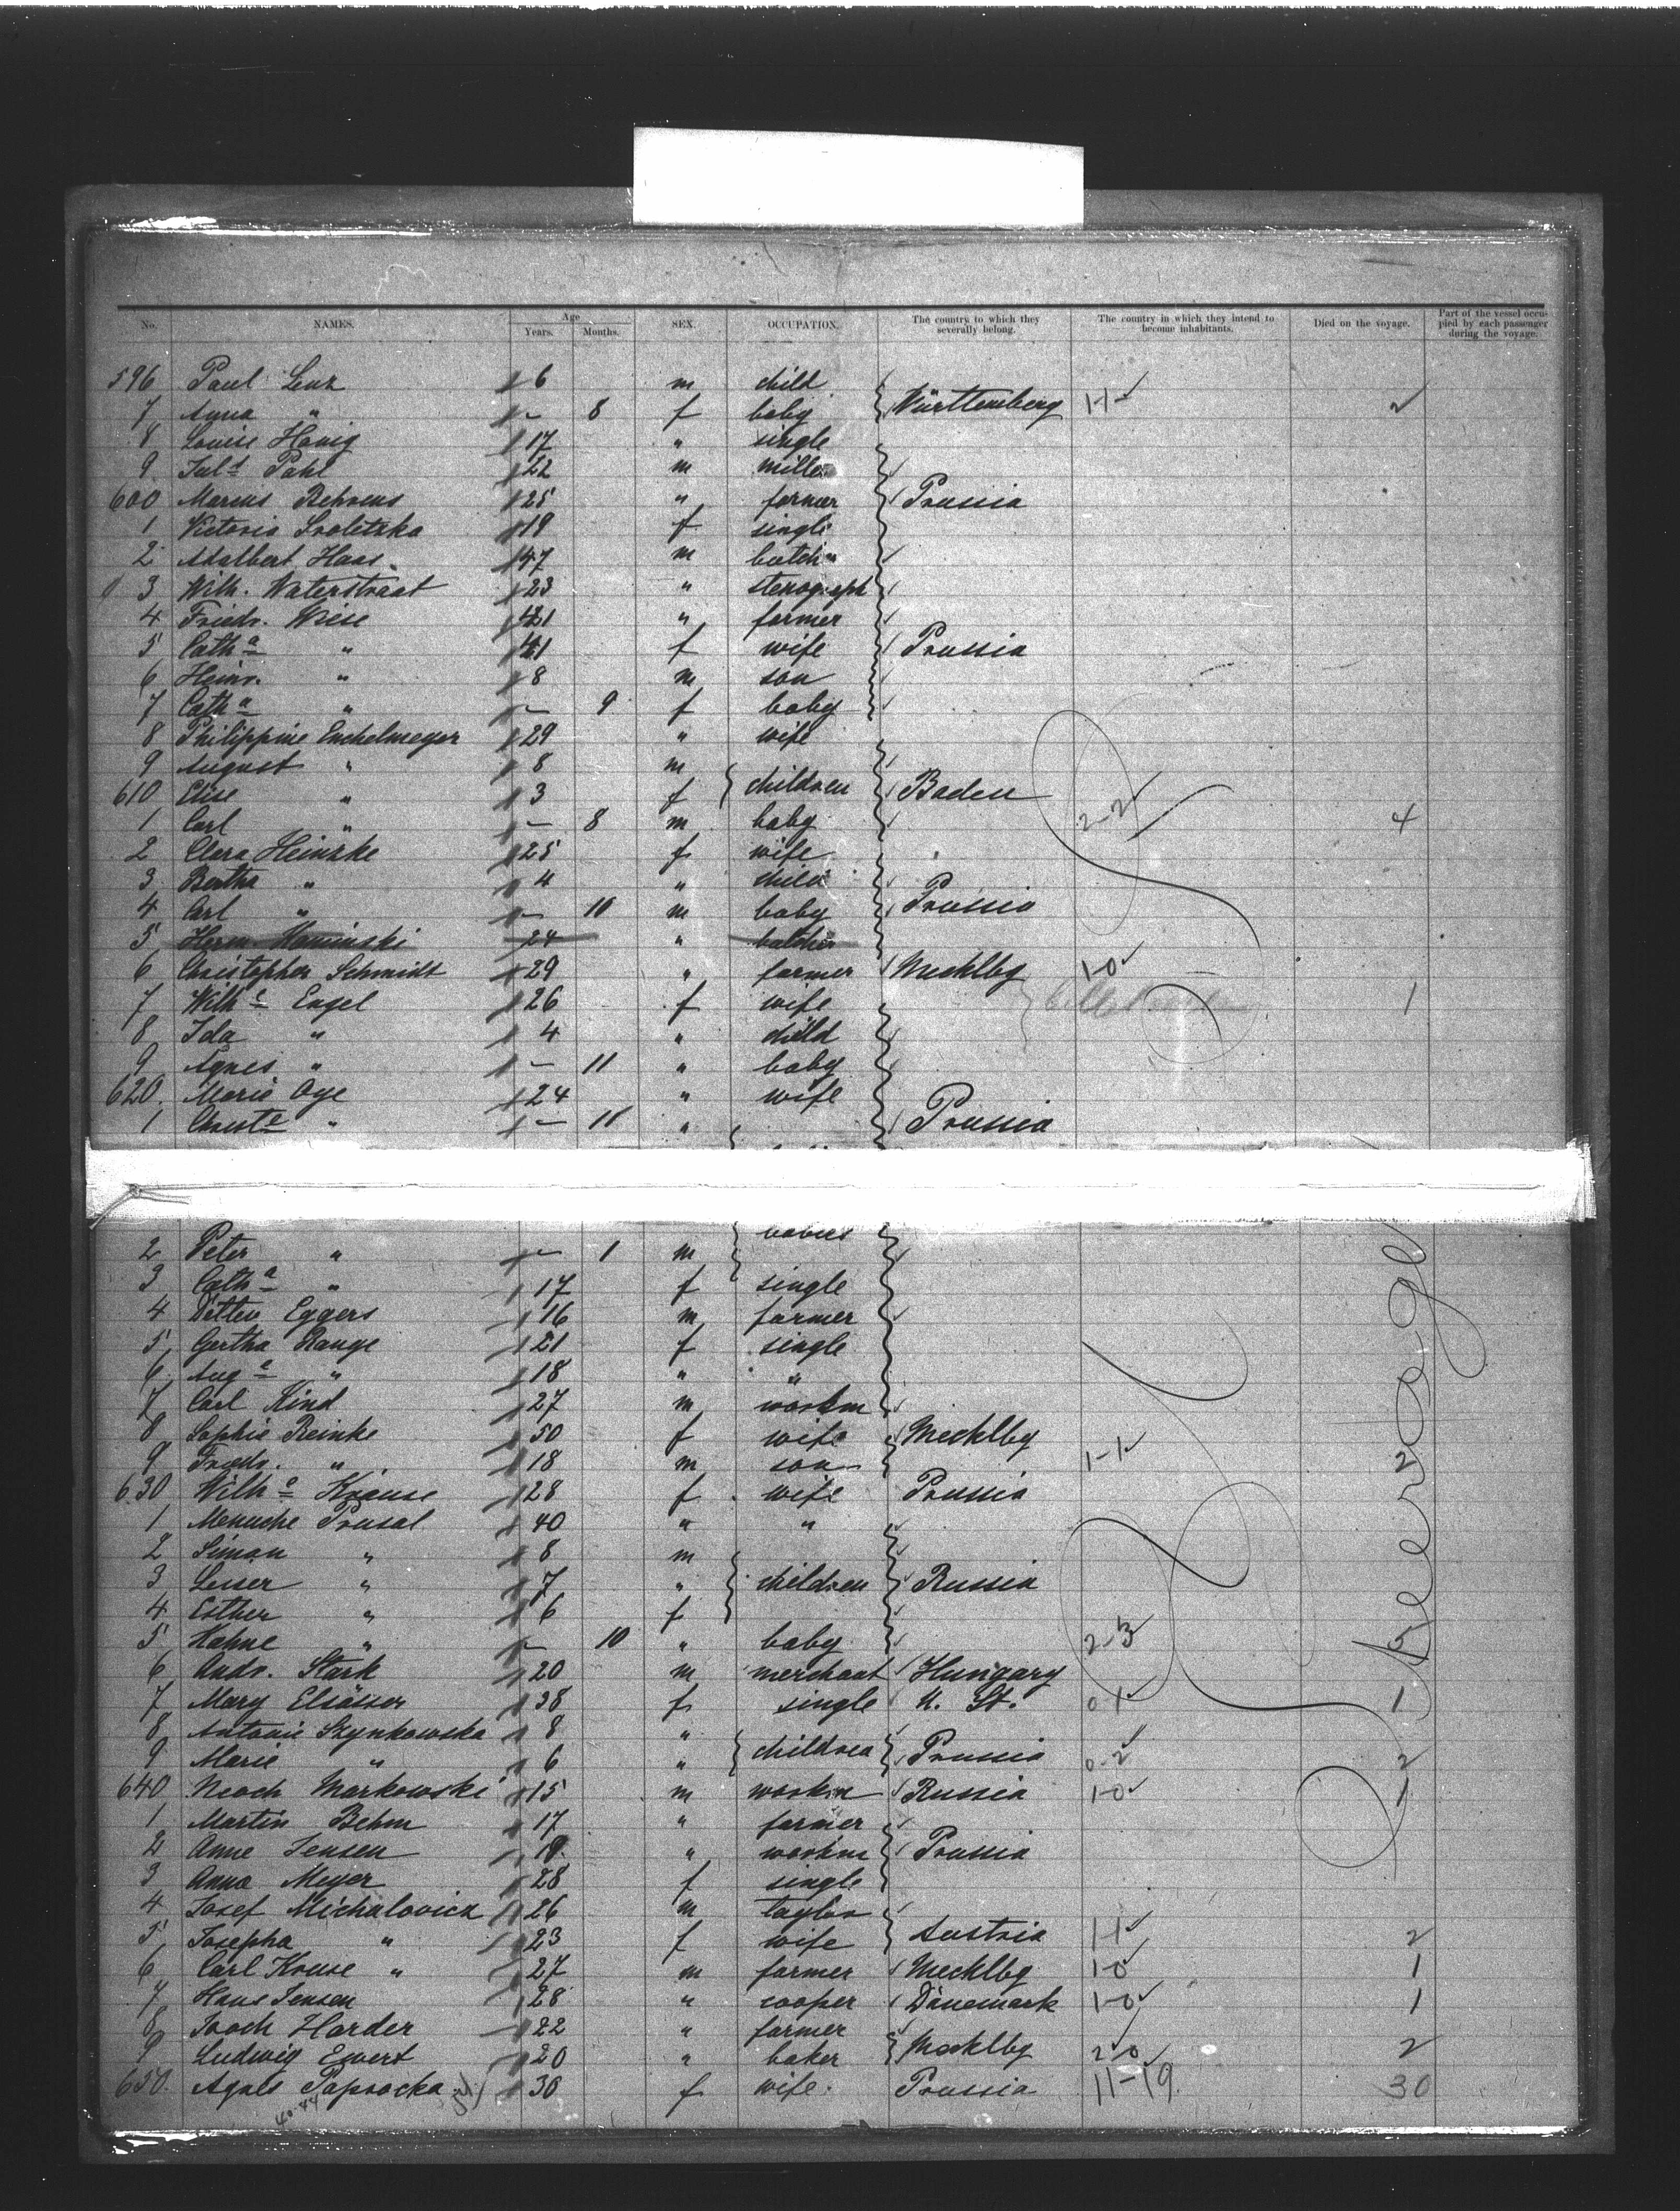 No. NAMES. Age Years. Months. SEX. OCCUPATION. The country to which they severally belong. The country in which they intend to become inhabitants. Died on the voyage. Part of the vessel occupied by each passenger during the voyage.
596 Paul Lenz 6 m child
7 Anna " - 8 f baby Württemberg 1-1 2
8 Louise Honig 17 " single
9 Jul. Pahl 22 m miller
600 Marius Behrens 25 " farmer Prussia
1 Victoria Sroletzka 18 f single
2 Adalbert Haas 47 m butcher
3 Wilh. Waterstraat 23 " stenograph
4 Friedr. Wiese 41 " farmer
5 Catha " 41 f wife Prussia
6 Heinr. " 8 m son
7 Catha " - 9 f baby
8 Philippine Enchelmayer 29 " wife
9 August " 8 m
610 Elise " 3 f children Baden
1 Carl " - 8 m baby 2-2 4
2 Clara Heinzke 25 f wife
3 Bertha " 4 " child
4 Carl " - 10 m baby Prussia
5 Herm. Kaminski 24 " butcher
6 Christopher Schmidt 29 " farmer Mecklbg 1-0
7 Wilhe Engel 26 f wife 1
8 Ida " 4 " child
9 Agnes " - 11 " baby
620. Marie Oye 24 " wife
1 Christe " - 11 " Prussia
babies
2 Peter " - 1 m
3 Catha " 17 f single
4 Detlev Eggers 16 m farmer
5 Gertha Range 21 f single
6 Auge " 18 " "
7 Carl Kind 27 m workm
8 Sophie Reinke 50 f wife Mecklbg
9 Friedr. " 18 m son 1-1 2
630 Wilhe Krause 28 f wife Prussia
1 Menuche Prusal 40 " "
2 Simon " 8 m
3 Lesser " 7 " children Russia
4 Esther " 6 f
5 Hahne " - 10 " baby 2-3
6 Andr. Stark 20 m merchant Hungary
7 Mary Elsässer 38 f single U. St. 0-1 1
8 Antonie Szynkowska 8 "
9 Marie " 6 " children Prussia 0-2 2
640 Noach Markowski 15 m workm Russia 1-0 1
1 Martin Behm 17 " farmer
2 Anne Jensen 19 " workm Prussia
3 Anna Meyer 28 f single
4 Josef Michalovicz 26 m taylor
5 Josepha " 23 f wife Austria 1-1 2
6 Carl Kruse " 27 m farmer Mecklbg 1-0 1
7 Hans Jensen 28 " cooper Dänemark 1-0 1
8 Joach Harder 22 " farmer
9 Ludwig Ewert 20 " baker Mecklbg 2-0 2
650. Agnes Paprocka 30 f wife. Prussia 11-19 30
Steerage